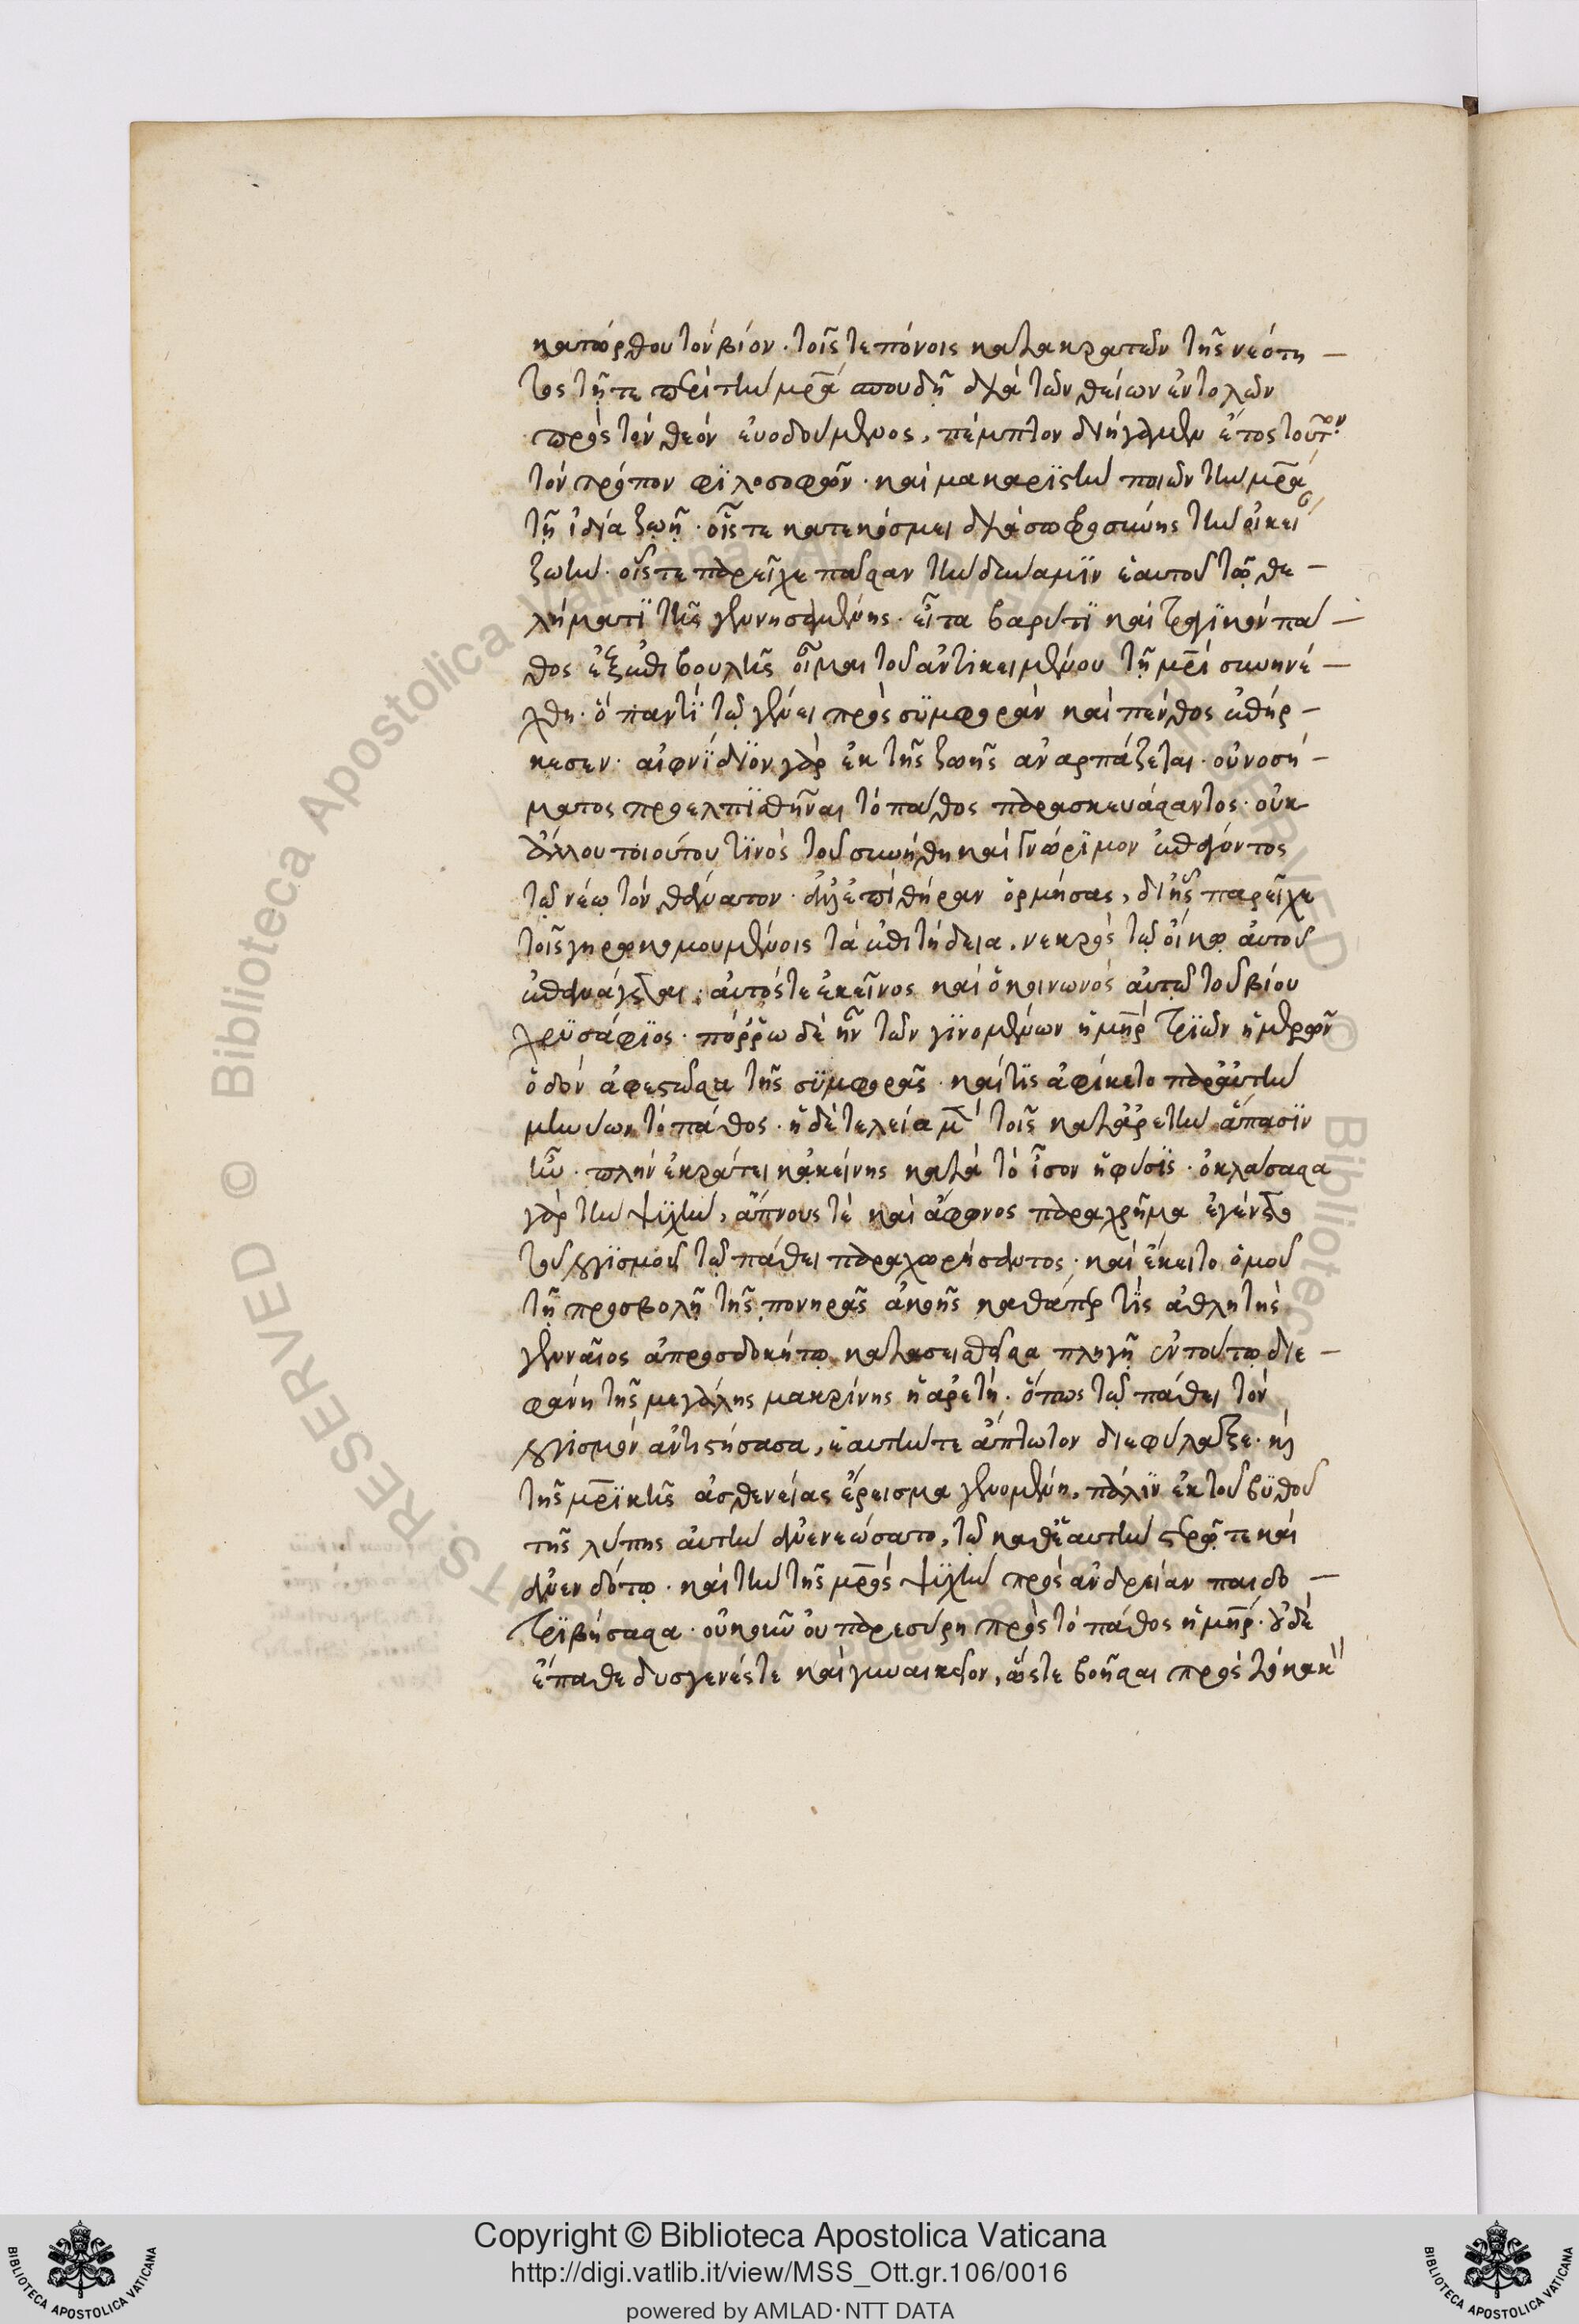 κατώρθου τὸν βίον· τοῖς τε πόνοις κατακρατῶν τῆς νεότη –
τος τῆ τε περὶ τὴν μρ̅α σπουδῆ διὰ τῶν θείων ἐντολῶν
πρὸς τὸν θεὸν εὐοδούμενος, πέμπτον διήγαγεν ἔτος τοῦτον
τὸν τρόπον φιλοσοφῶν· καὶ μακαριστὴν ποιῶν τὴν μρ̅α
τῆ ἰδία ζωῆ· οἷς τε κατεκόσμει διὰ σωφροσύνης τὴν οἰκείαν
ζωήν· οἷς τε παρεῖχε πᾶσαν τὴν δύναμϊν ἑαυτοῦ τῶ θε –
λήματϊ τῆς γεννησαμένης· εἶτα βαρύ τϊ καὶ τραγϊκὸν πά –
θος ἐξ ἐπιβουλῆς οἶμαι τοῦ ἀντικειμένου τῆ μρ̅ι συνηνέ –
χθη· ὃ παντὶ τῶ γένει πρὸς σϋμφορὰν καὶ πένθος ἐπήρ –
κεσεν· αἰφνϊδϊον γὰρ ἐκ τῆς ζωῆς ἀναρπάζεται· οὐ νοσή –
ματος προελπϊσθῆναι τὸ πάθος παρασκευάσαντος· οὐκ
ἄλλου τοιούτου τϊνὸς τοῦ συνήθη καὶ γνώρϊμον ἐπάγοντος
τῶ νέω τὸν θάνατον· ἀλλ' ἐπὶ θήραν ὁρμήσας, δι' ἧς παρεῖχε
τοῖς γηροκομουμένοις τὰ ἐπιτήδεια, νεκρὸς τῶ οἴκω αὐτοῦ
ἐπανάγεται· αὐτός τε ἐκεῖνος καὶ ὁ κοινωνὸς αὐτῶ τοῦ βίου
χρϋσάφϊος· πόρρω δὲ ἦν τῶν γϊνομένων ἡ μη̅ρ τρϊῶν ἡμερῶν
ὁδὸν ἀφεστῶσα τῆς σϋμφορᾶς· καί τϊς ἀφίκετο παρ' αὐτὴν
μηνύων τὸ πάθος· ἡ δὲ τελεία μὲν τοῖς κατ' ἀρετὴν ἅπασϊν
ἦν· πλὴν ἐκράτει κἀκείνης κατὰ τὸ ἴσον ἡ φύσϊς· ὀκλάσασα
γὰρ τὴν ψϋχήν, ἄπνους τὲ καὶ ἄφωνος παραχρῆμα ἐγένετο
τοῦ λογϊσμοῦ τῶ πάθει παραχωρήσαντος· καὶ ἔκειτο ὁμοῦ
τῆ προσβολῆ τῆς πονηρᾶς ἀκοῆς καθάπερ τϊς ἀθλητὴς
γενναῖος ἀπροσδοκήτω κατασεισθεῖσα πληγῆ ἐν τούτω διε –
φάνη τῆς μεγάλης μακρίνης ἡ ἀρετή· ὅπως τῶ πάθει τὸν
λογισμὸν ἀντιστήσασα, ἑαυτήν τε ἄπτωτον διεφύλαξε· κ̀
τῆς μρ̅ϊκῆς ἀσθενείας ἔρεισμα γενομένη, πάλϊν ἐκ τοῦ βϋθοῦ
τῆς λύπης αὐτὴν ἀνενεώσατο, τῶ καθ' ἑαυτὴν στερρῶ τε καὶ
ἀνενδότω· καὶ τὴν τῆς μρ̅ος ψϋχὴν πρὸς ἀνδρείαν παιδο –
τρϊβήσασα· οὐκοῦν οὐ παρεσύρη πρὸς τὸ πάθος ἡ μη̅ρ· οὐδὲ
ἔπαθε δυσγενές τε καὶ γυναικεῖον, ὥστε βοῆσαι πρὸς τὸ κακὸν